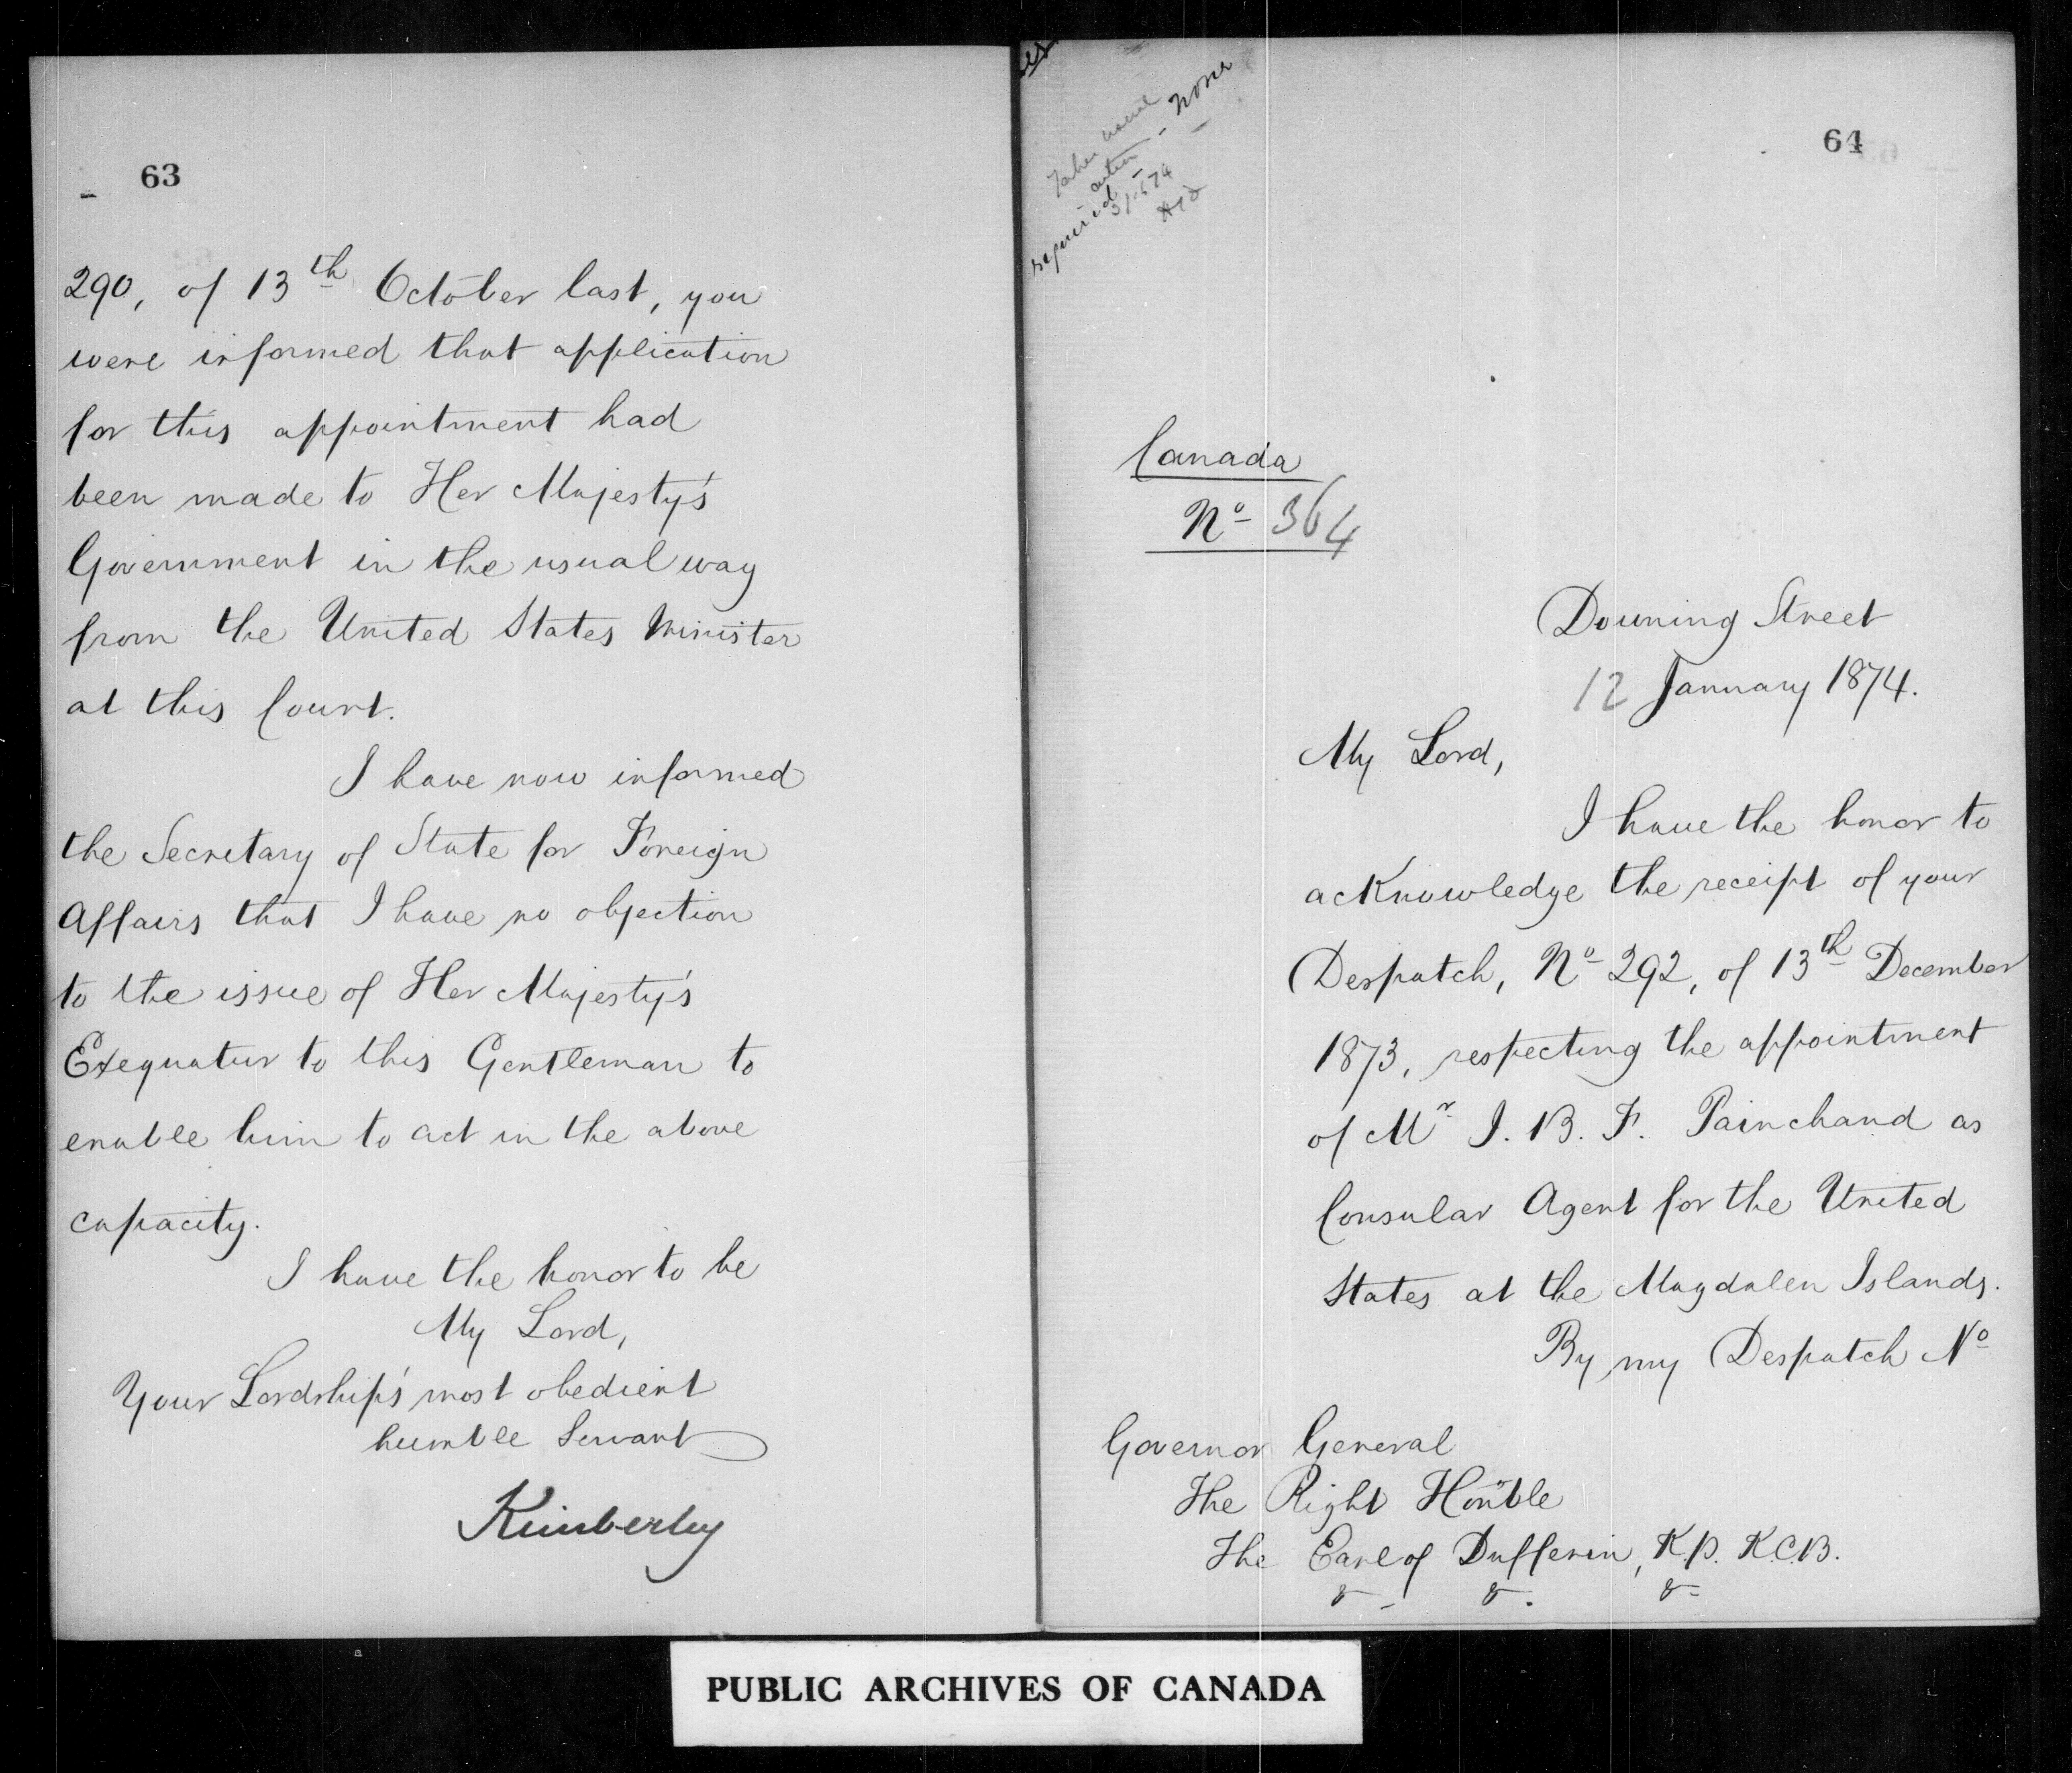 63
290, of 13th October last, you
were informed that application
for this appointment had
been made to Her Majesty's
Government in the usual way
from the United States Minister
at this Court.
I have now informed
the Secretary of State for Foreign
Affairs that I have no objection
to the issue of Her Majesty's
Exequatur to this Gentleman to
enable him to act in the above
capacity.
I have the honor to be
My Lord,
Your Lordship's most obedient
humble Servant
Kimberley
64
None
required
Canada
No 364
Downing Street
12 January 1874.
My Lord,
I have the honor to
acknowledge the receipt of your
Despatch, No 292, of 13th December
1873, respecting the appointment
of Mr J. B. F. Painchaud as
Consular Agent for the United
States at the Magdalen Islands.
By my Despatch No
Governor General
The Right Honble
The Earl of Dufferin, K.P. K.C.B.
& & &
PUBLIC ARCHIVES OF CANADA